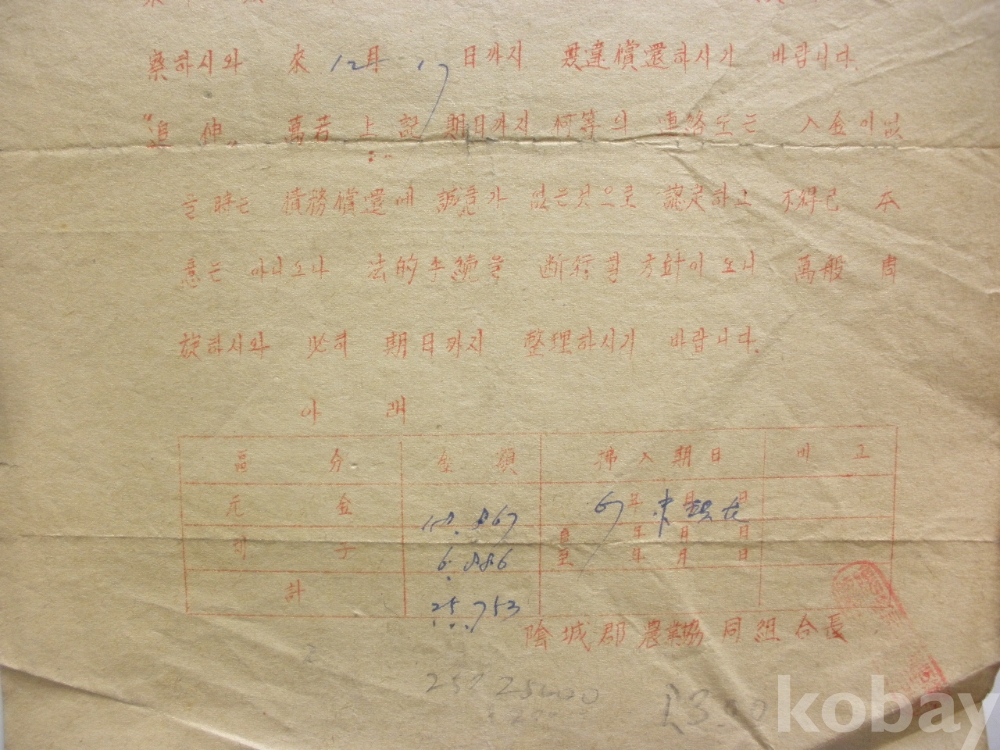 察하시와 來 12月 17日까지 無違償還하시기 바랍니다.
"追伸" 萬若 上記 期日까지 何等의 連絡또는 入金이없
을 時는 債務償還에 誠意가 없는것으로 認定하고 不得已 本
意는 아니오나 法的手續을 断行할 方針이오니 萬般 周
旋하시와 必히 期日까지 整理하시기 바랍니다.
아 래
區 分 金 額 拂入期日 비 고
元 金 867 67年 月 日
利 子 6.886 自 年 月 日
至 年 月 日
計 25.753
陰城郡農業協同組合長
kobay